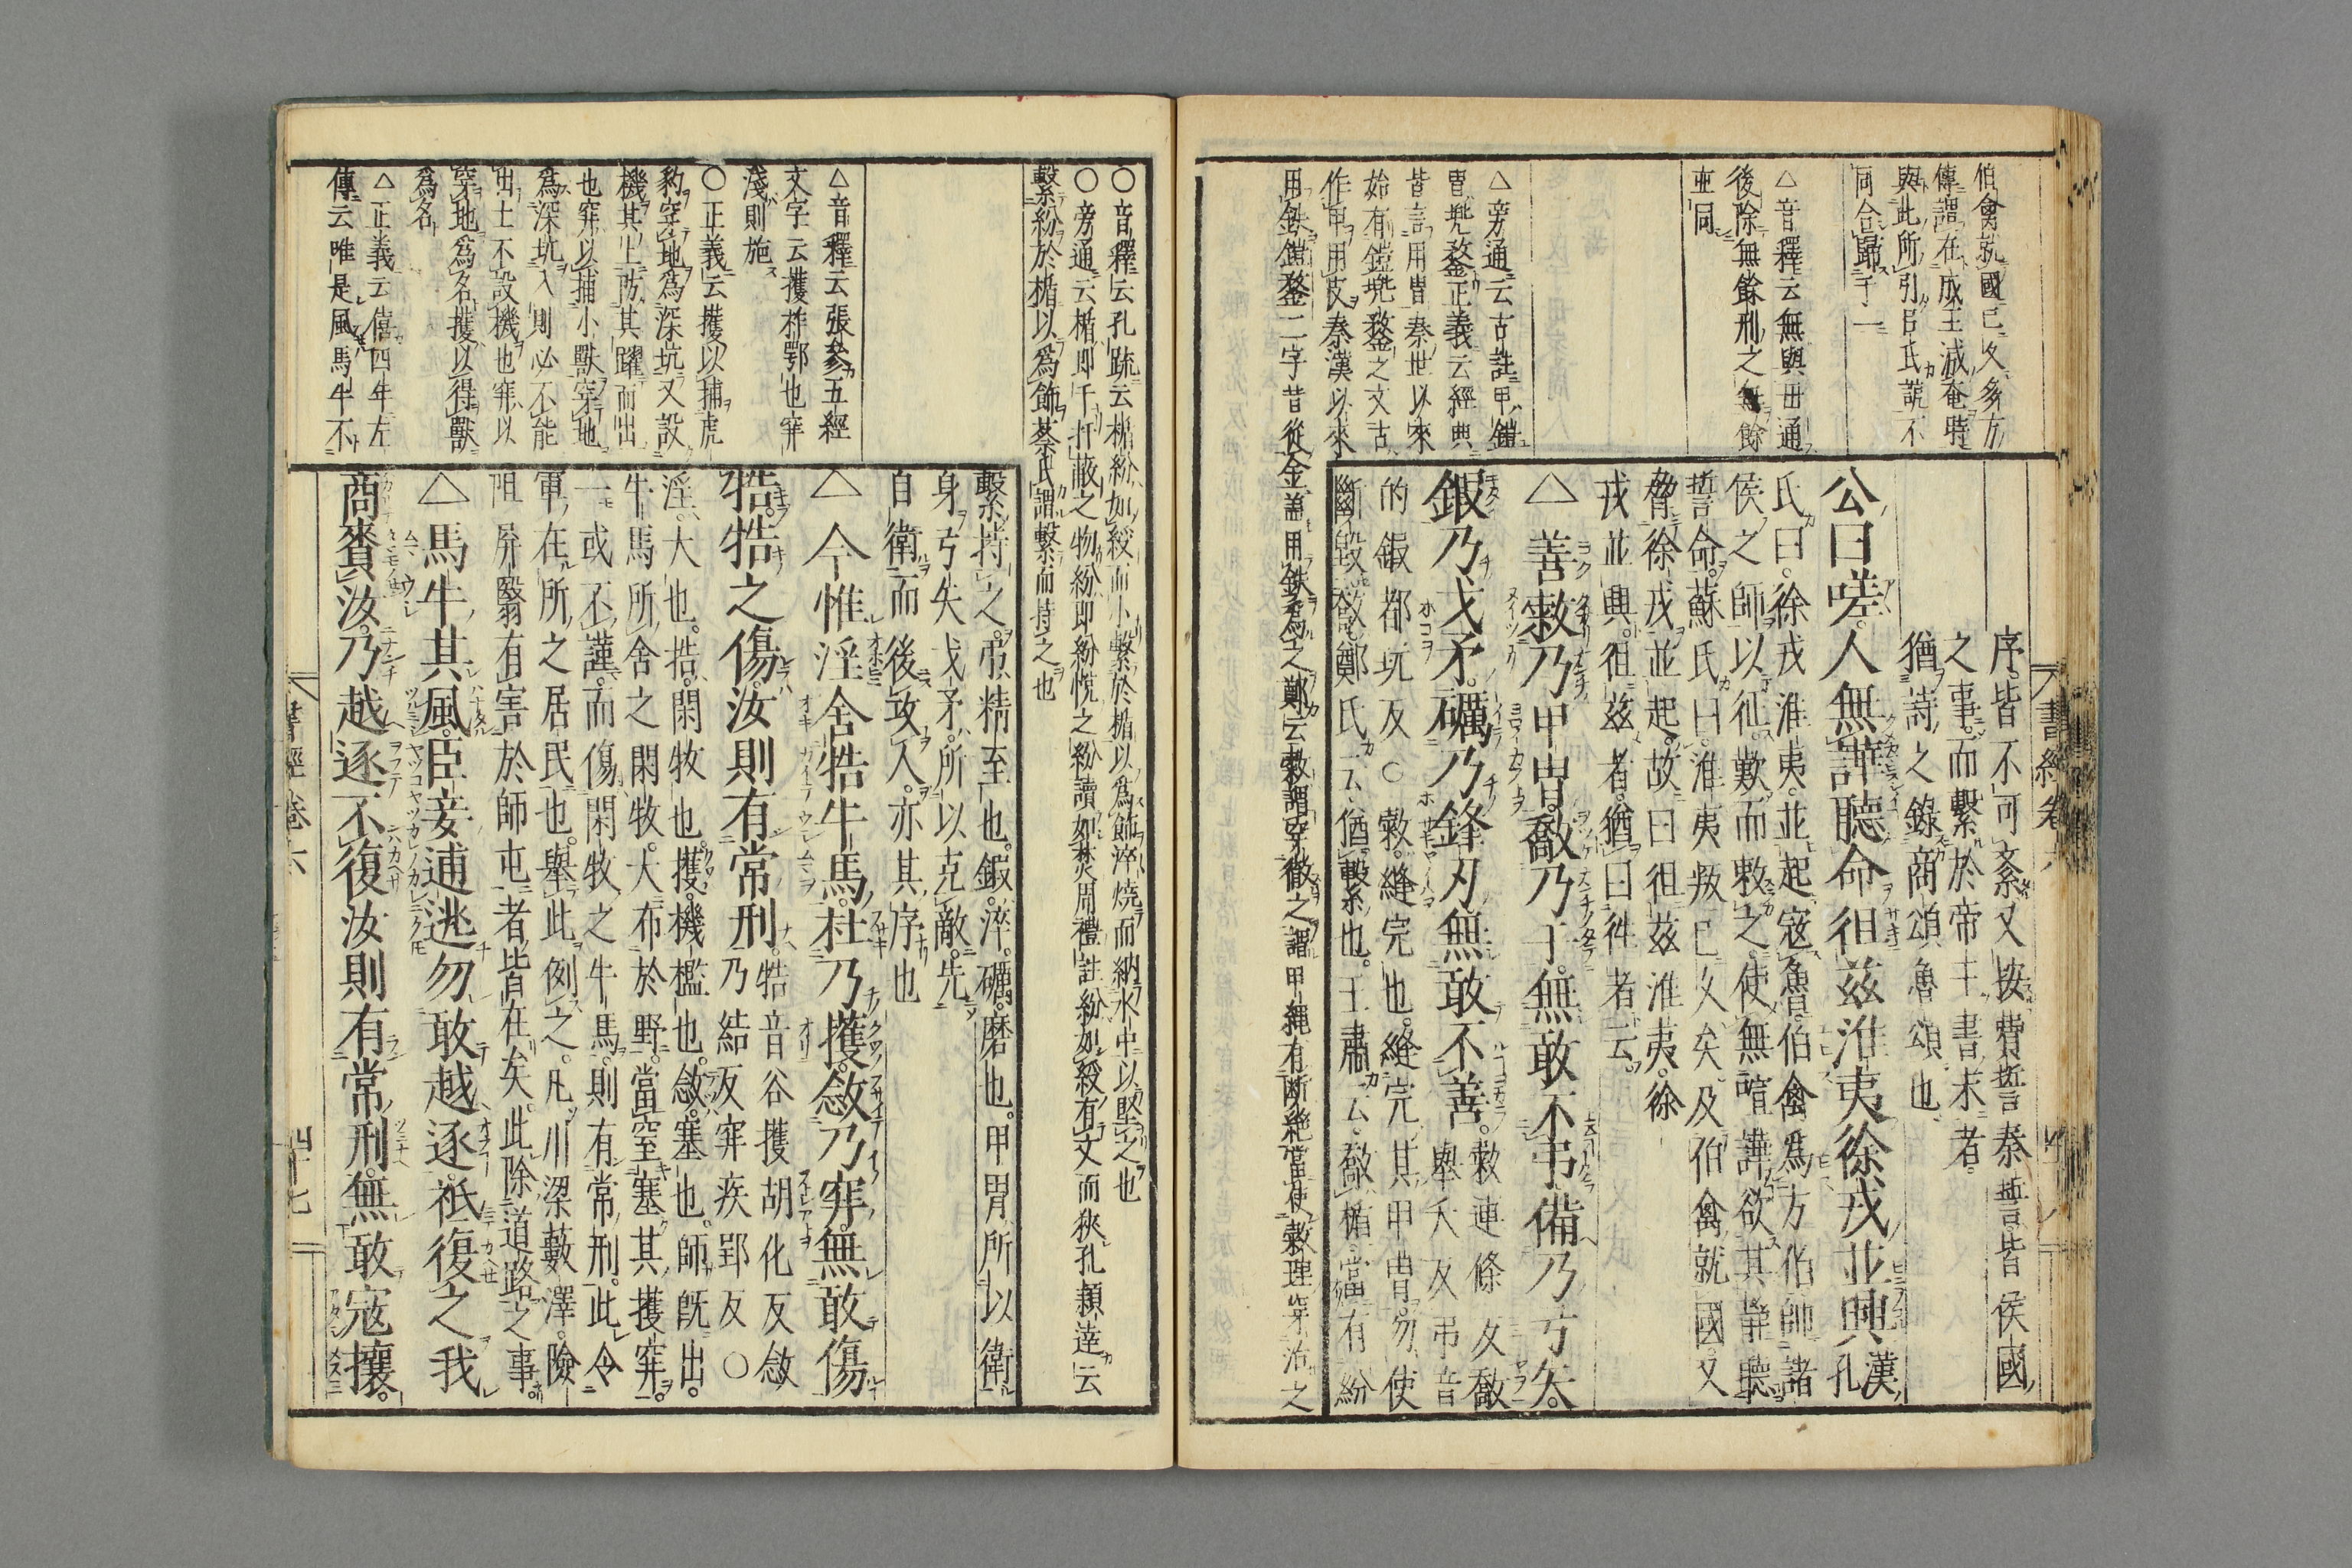 伯禽就國已久多方
傳謂在成王滅奄時
與此所引呂氏說不
同合歸于一
△音釋云無與毋通
後除無餘刑之無餘
並同
△旁通云古註甲鎧
冑兜鍪正義云經典
皆言甲冑秦世以來
始有鎧兜鍪之文古
作甲用皮秦漢以來
用鉄鎧鍪二字昔從金蓋用鉄為之鄭云敹謂穿徹之謂甲繩有断絶當使敹理穿治之
序皆不可紊又按費誓秦誓皆侯國
之事而繫於帝王書末者
猶詩之錄商頌魯頌也
公曰嗟人無譁聽命徂茲淮夷徐戎並興漢孔
氏曰徐戎淮夷並起寇魯伯禽為方伯帥諸
侯之師以征歎而敕之使無諠譁欲其靜聽
誓命蘇氏曰淮夷叛已久矣及伯禽就國又
脅徐戎並起故曰徂茲淮夷徐
戎並興徂茲者猶曰往者云
△善敹乃甲冑敿乃干無敢不弔備乃弓矢
鍜乃戈矛礪乃鋒刃無敢不善敹連條反敿
舉夭反弔音
的鍜都玩反○敹縫完也縫完其甲冑勿使
斷毀敿鄭氏云猶繫也王肅云敿楯當有紛
○音釋云孔疏云楯紛如綬而小繫於楯以為飾淬燒而納水中以堅之也
○旁通云楯即干扞蔽之物紛即紛帨之紛讀如焚周禮註紛如綬有文而狹孔穎達云
繫紛於楯以為飾蔡氏謂繫而持之也
繫持之弔精至也鍜淬礪磨也甲冑所以衛
身弓矢戈矛所以克敵先
自衛而後攻人亦其序也
△音釋云張參五經
文字云擭柞鄂也穽
淺則施
○正義云擭以捕虎
豹穿地為深坑又設
機其上防其躍而出
也穽以捕小獸穿地
為深坑入則必不能
出士不設機也穽以
穿地為名擭以得獸
為名
△正義云僖四年左
傳云唯是風馬牛不
△今惟淫舍牿牛馬杜乃擭敜乃穽無敢傷
牿牿之傷汝則有常刑牿音谷擭胡化反敜
乃結反穽疾郢反○
淫大也牿閑牧也擭機檻也敜塞也師既出
牛馬所舍之閑牧大布於野當窒塞其擭穽
一或不謹而傷閑牧之牛馬則有常刑此令
軍在所之居民也舉此例之凡川梁藪澤險
阻屏翳有害於師屯者皆在矣此除道路之事
△馬牛其風臣妾逋逃勿敢越逐祗復之我
商賚汝乃越逐不復汝則有常刑無敢寇攘
書經卷六
四十七